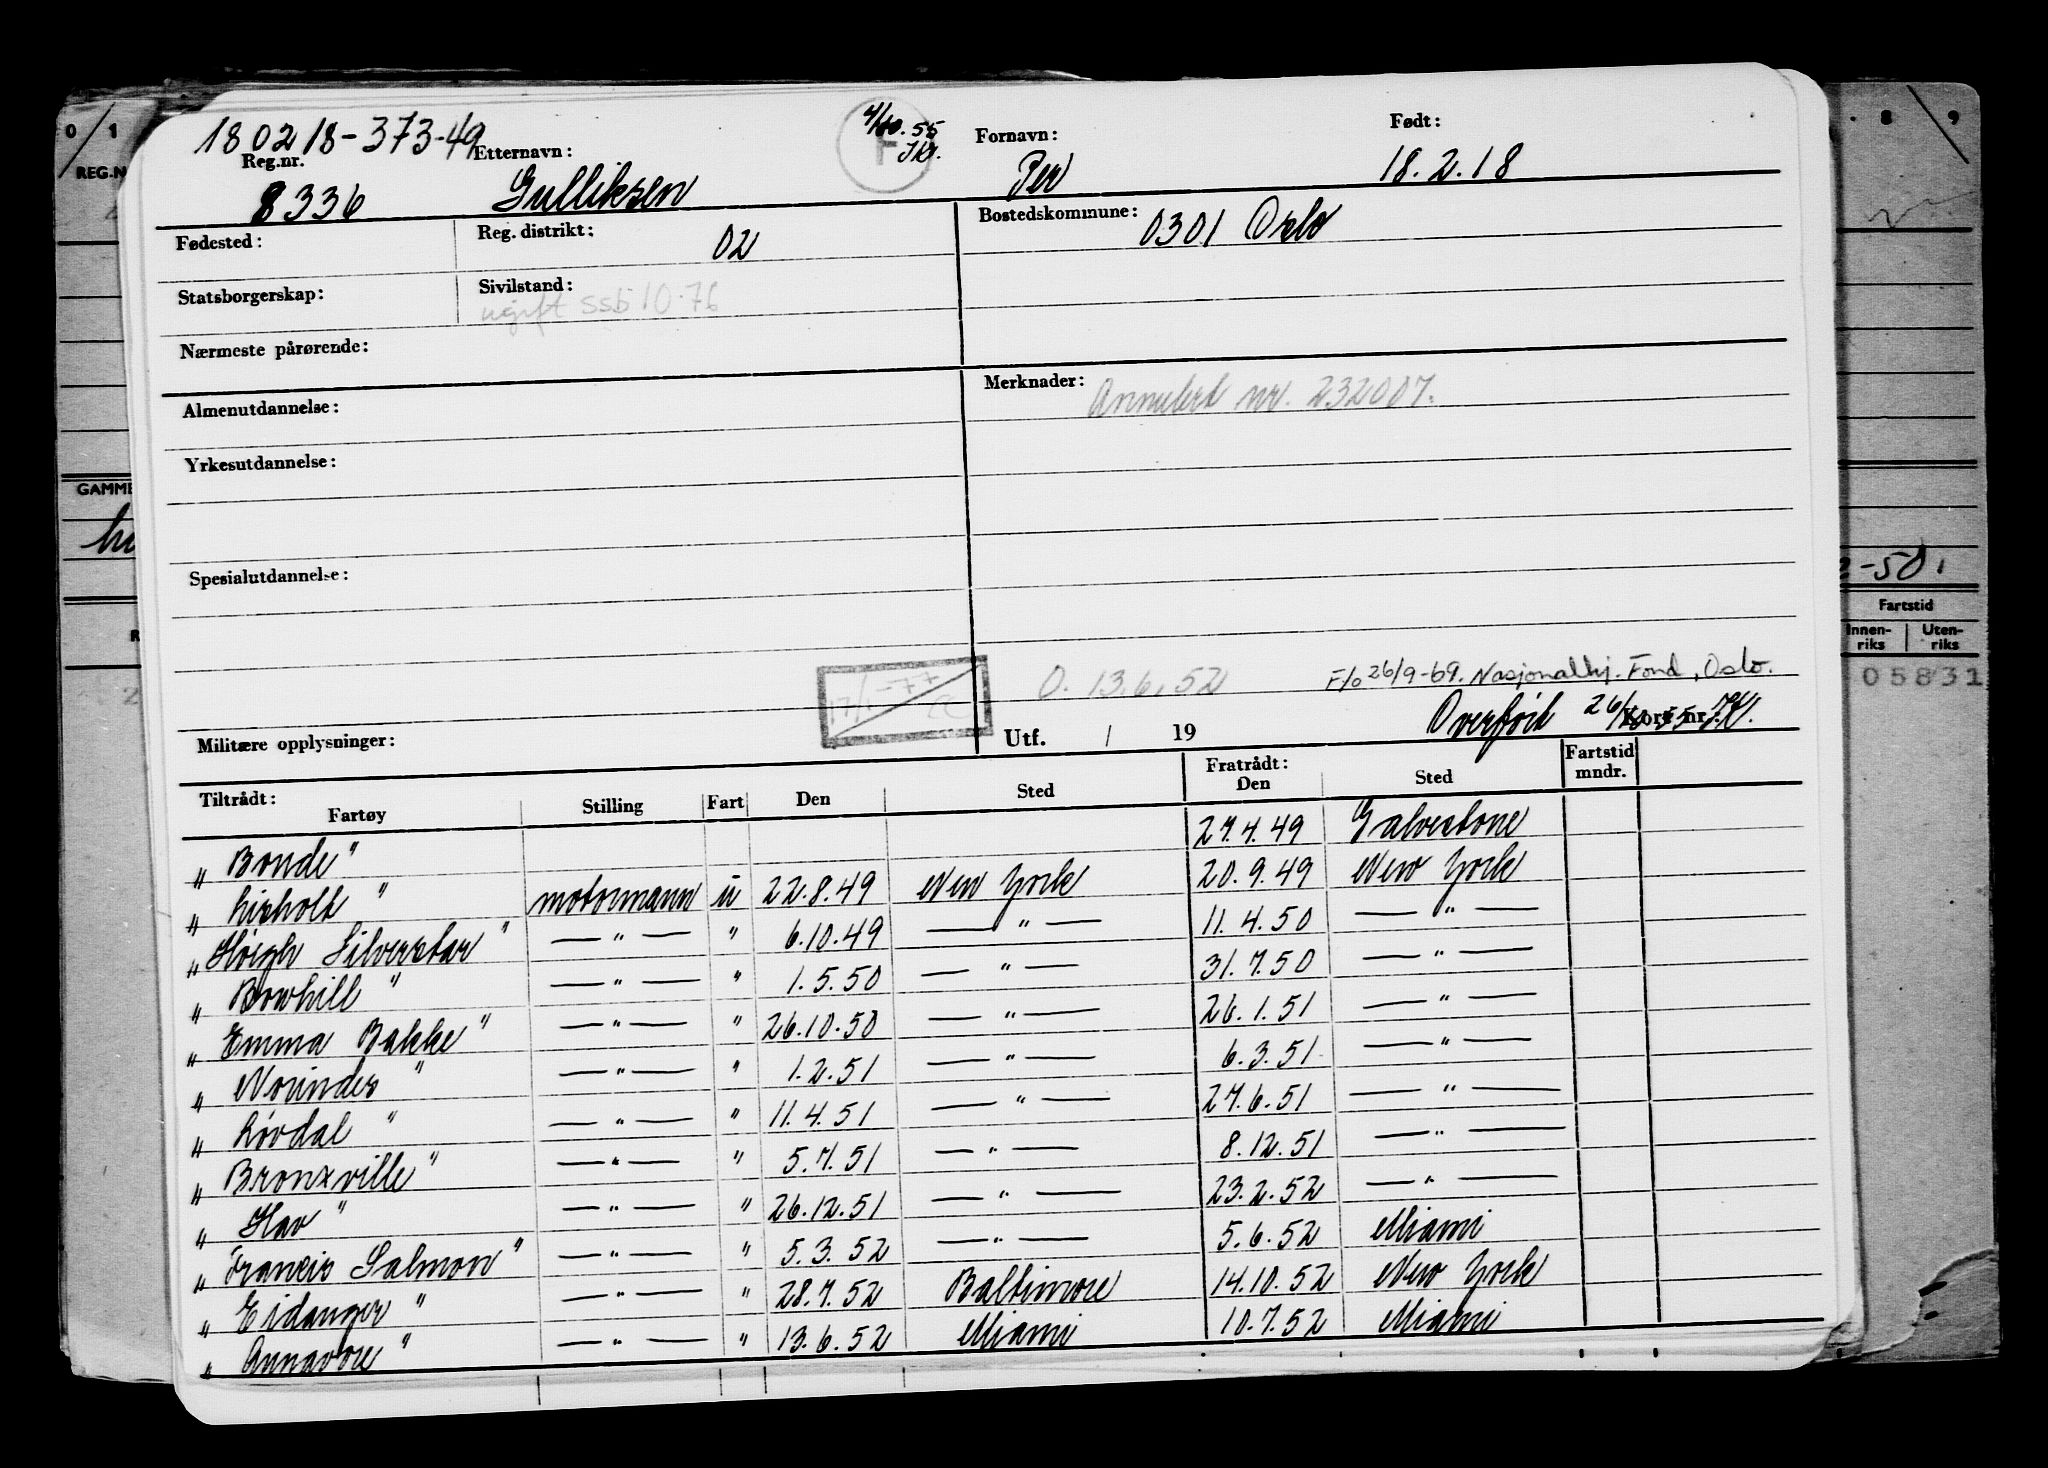 180218-373-49
4/10.55
F
JKr.
Reg.nr. Etternavn: Fornavn: Født:
8336 Gulliksen Per 18.2.18
Fødested: Reg. distrikt: 02 Bostedskommune: 0301 Oslo
Statsborgerskap: Sivilstand:
ugift ssb 10.76
Nærmeste pårørende:
Almenutdannelse: Merknader: Annulert nr. 232007.
Yrkesutdannelse:
Spesialutdannelse:
17/1-77
O. 13.6.52 F/o 26/9-69. Nasjonalhj. Fond, Oslo.
Militære opplysninger: Utf. / 19 Overført 26/ Kort nr. JK.
Tiltrådt: Fratrådt: Fartstid
Fartøy Stilling Fart Den Sted Den Sted mndr.
„Bonde" 27.4.49 Galvestone
„Lisholt" motormann u 22.8.49 New York 20.9.49 New York
„Høegh Silverstar" — " — " 6.10.49 — " — 11.4.50 — " —
„Bowhill" — " — " 1.5.50 — " — 31.7.50 — " —
„Emma Bakke" — " — " 26.10.50 — " — 26.1.51 — " —
„Norindes" — " — " 1.2.51 — " — 6.3.51 — " —
„Lørdal" — " — " 11.4.51 — " — 27.6.51 — " —
„Bronxville" — " — " 5.7.51 — " — 8.12.51 — " —
„Hav" — " — " 26.12.51 — " — 23.2.52 — " —
„Francis Salmon" — " — " 5.3.52 — " — 5.6.52 Miami
„Eidanger" — " — " 28.7.52 Baltimore 14.10.52 New York
„Annavore" — " — " 13.6.52 Miami 10.7.52 Miami
0/1
REG.N
GAMME
8/9
2-50.
Fartstid
Innen-riks Uten-riks
05831